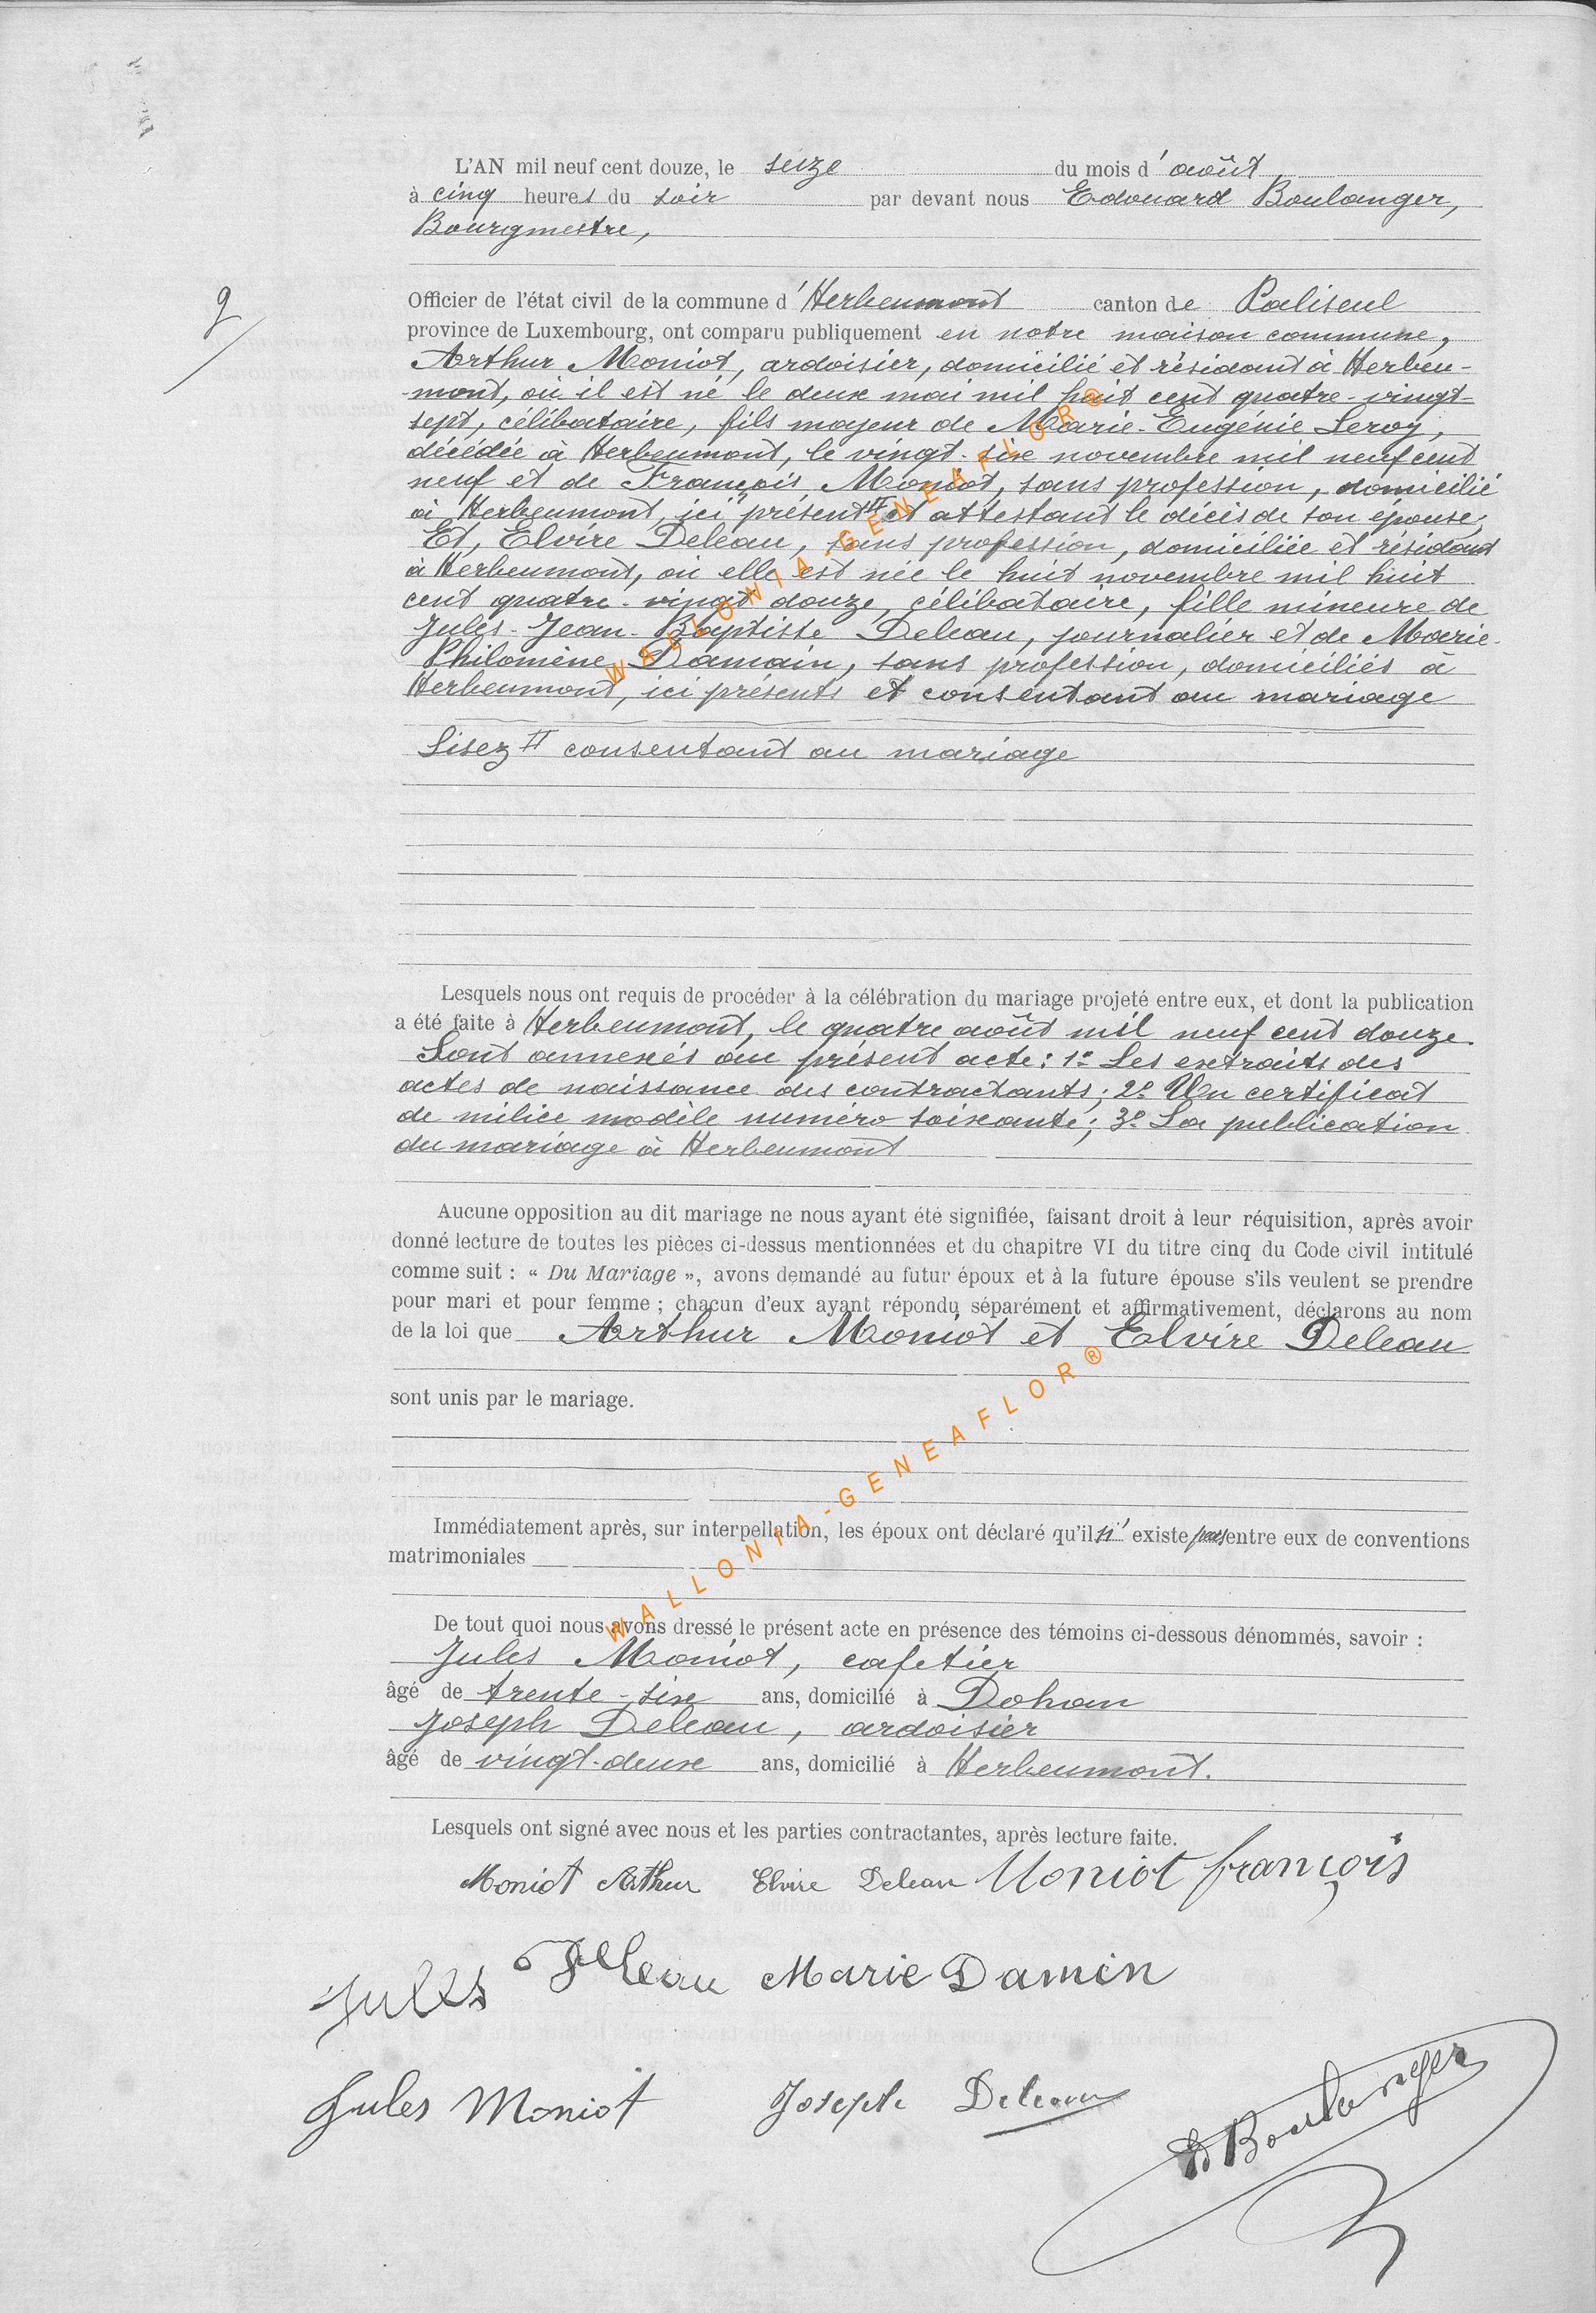 L'AN mil neuf cent douze, le seize du mois d' août
à cinq heures du soir par devant nous Edouard Boulanger,
Bourgmestre,
9
Officier de l'état civil de la commune d' Herbeumont canton de Paliseul
province de Luxembourg, ont comparu publiquement en notre maison commune,
Arthur Moniot, ardoisier, domicilié et résidant à Herbeu-
mont, où il est né le deux mai mil huit cent quatre-vingt-
sept, célibataire, fils majeur de Marie-Eugénie Leroy,
décédée à Herbeumont, le vingt-six novembre mil neuf cent
neuf et de François Moniot, sans profession, domicilié
à Herbeumont, ici présent II et attestant le décès de son épouse,
Et, Elvire Deleau, sans profession, domiciliée et résidant
à Herbeumont, où elle est née le huit novembre mil huit
cent quatre-vingt douze, célibataire, fille mineure de
Jules-Jean-Baptiste Deleau, journalier et de Marie-
Philomène Damain, sans profession, domiciliés à
Herbeumont, ici présents et consentant au mariage
Lisez II consentant au mariage
WALLONIA-GENEAFLOR®
Lesquels nous ont requis de procéder à la célébration du mariage projeté entre eux, et dont la publication
a été faite à Herbeumont, le quatre août mil neuf cent douze.
Sont annexés au présent acte: 1º Les extraits des
actes de naissance des contractants; 2º Un certificat
de milice modèle numéro soixante; 3º La publication
du mariage à Herbeumont
Aucune opposition au dit mariage ne nous ayant été signifiée, faisant droit à leur réquisition, après avoir
donné lecture de toutes les pièces ci-dessus mentionnées et du chapitre VI du titre cinq du Code civil intitulé
comme suit : « Du Mariage », avons demandé au futur époux et à la future épouse s'ils veulent se prendre
pour mari et pour femme ; chacun d'eux ayant répondu séparément et affirmativement, déclarons au nom
de la loi que Arthur Moniot et Elvire Deleau
sont unis par le mariage.
WALLONIA-GENEAFLOR®
Immédiatement après, sur interpellation, les époux ont déclaré qu'il n' existe pas entre eux de conventions
matrimoniales
De tout quoi nous avons dressé le présent acte en présence des témoins ci-dessous dénommés, savoir :
Jules Moniot, cafetier
âgé de trente-six ans, domicilié à Dohan
Joseph Deleau, ardoisier
âgé de vingt-deux ans, domicilié à Herbeumont.
Lesquels ont signé avec nous et les parties contractantes, après lecture faite.
Moniot Arthur Elvire Deleau Moniot françois
Jules Deleau Marie Damin
Jules Moniot Joseph Deleau
E Boulanger